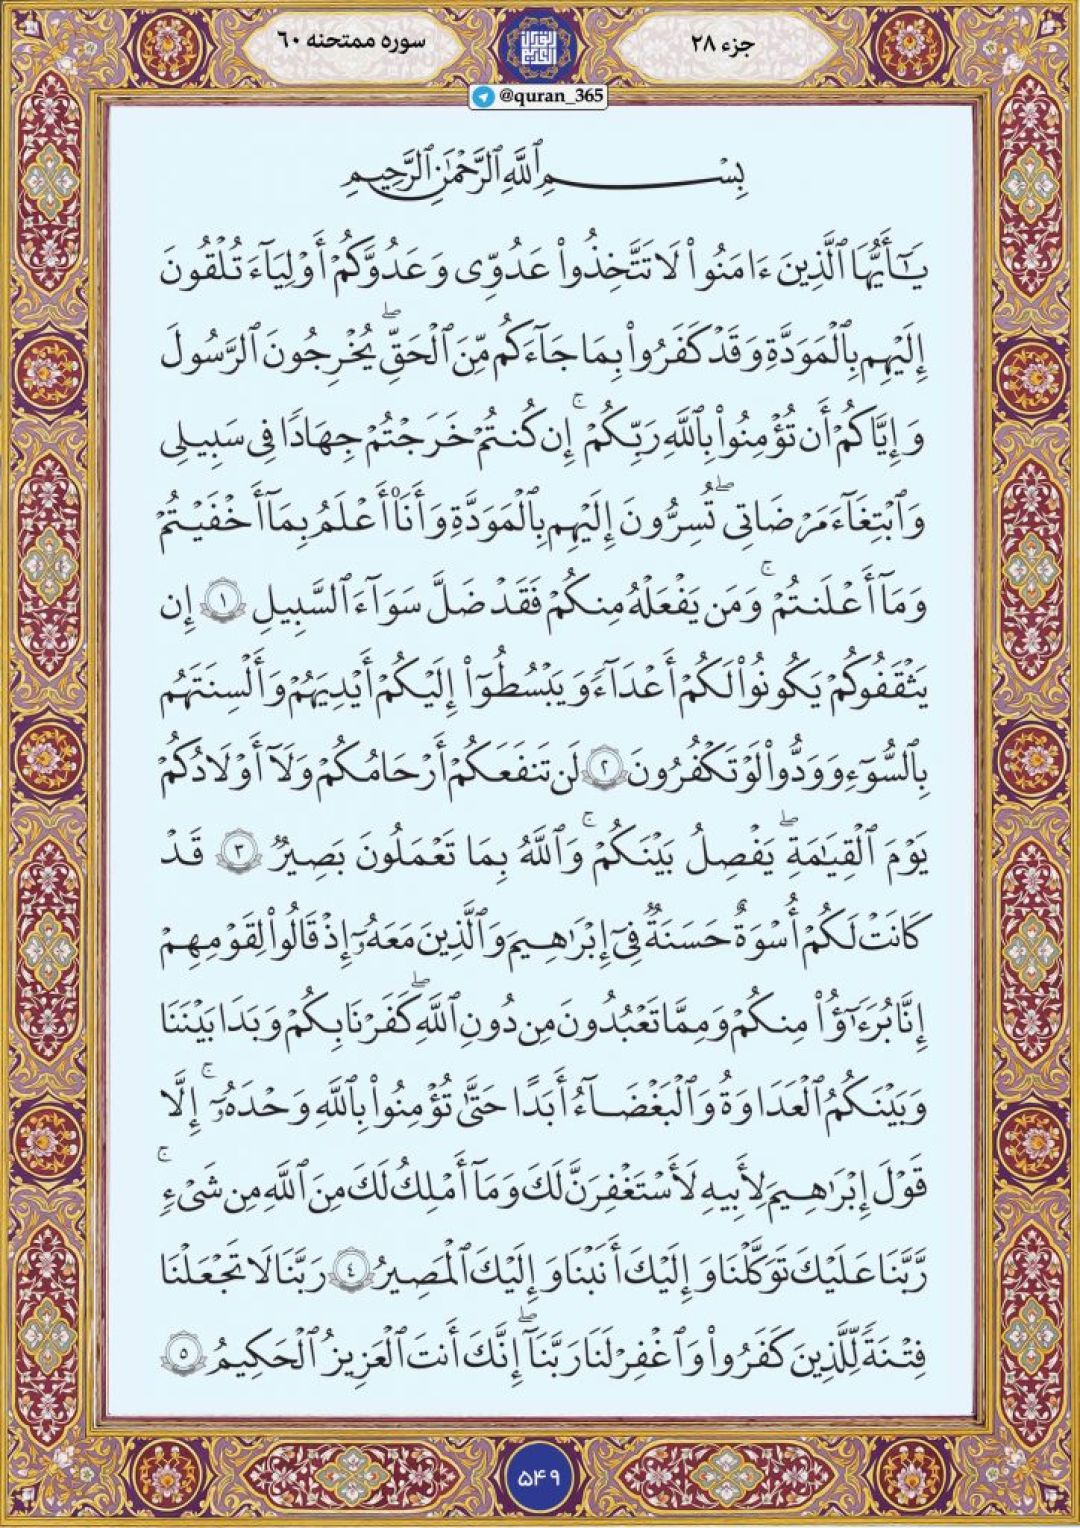 جزء ۲۸
سوره ممتحنه ۶۰
@quran_365
بِسْمِ ٱللَّهِ ٱلرَّحْمَٰنِ ٱلرَّحِيمِ
يَٰٓأَيُّهَا ٱلَّذِينَ ءَامَنُوا۟ لَا تَتَّخِذُوا۟ عَدُوِّى وَعَدُوَّكُمْ أَوْلِيَآءَ تُلْقُونَ
إِلَيْهِم بِٱلْمَوَدَّةِ وَقَدْ كَفَرُوا۟ بِمَا جَآءَكُم مِّنَ ٱلْحَقِّ ۖ يُخْرِجُونَ ٱلرَّسُولَ
وَإِيَّاكُمْ أَن تُؤْمِنُوا۟ بِٱللَّهِ رَبِّكُمْ ۚ إِن كُنتُمْ خَرَجْتُمْ جِهَادًا فِى سَبِيلِى
وَٱبْتِغَآءَ مَرْضَاتِى ۖ تُسِرُّونَ إِلَيْهِم بِٱلْمَوَدَّةِ وَأَنَا۠ أَعْلَمُ بِمَآ أَخْفَيْتُمْ
وَمَآ أَعْلَنتُمْ ۚ وَمَن يَفْعَلْهُ مِنكُمْ فَقَدْ ضَلَّ سَوَآءَ ٱلسَّبِيلِ ١ إِن
يَثْقَفُوكُمْ يَكُونُوا۟ لَكُمْ أَعْدَآءً وَيَبْسُطُوٓا۟ إِلَيْكُمْ أَيْدِيَهُمْ وَأَلْسِنَتَهُم
بِٱلسُّوٓءِ وَوَدُّوا۟ لَوْ تَكْفُرُونَ ٢ لَن تَنفَعَكُمْ أَرْحَامُكُمْ وَلَآ أَوْلَٰدُكُمْ
يَوْمَ ٱلْقِيَٰمَةِ ۖ يَفْصِلُ بَيْنَكُمْ ۚ وَٱللَّهُ بِمَا تَعْمَلُونَ بَصِيرٌ ٣ قَدْ
كَانَتْ لَكُمْ أُسْوَةٌ حَسَنَةٌ فِىٓ إِبْرَٰهِيمَ وَٱلَّذِينَ مَعَهُۥٓ إِذْ قَالُوا۟ لِقَوْمِهِمْ
إِنَّا بُرَءَٰٓؤُا۟ مِنكُمْ وَمِمَّا تَعْبُدُونَ مِن دُونِ ٱللَّهِ ۖ كَفَرْنَا بِكُمْ وَبَدَا بَيْنَنَا
وَبَيْنَكُمُ ٱلْعَدَاوَةُ وَٱلْبَغْضَآءُ أَبَدًا حَتَّىٰ تُؤْمِنُوا۟ بِٱللَّهِ وَحْدَهُۥٓ ۚ إِلَّا
قَوْلَ إِبْرَٰهِيمَ لِأَبِيهِ لَأَسْتَغْفِرَنَّ لَكَ وَمَآ أَمْلِكُ لَكَ مِنَ ٱللَّهِ مِن شَىْءٍ ۚ
رَّبَّنَا عَلَيْكَ تَوَكَّلْنَا وَإِلَيْكَ أَنَبْنَا وَإِلَيْكَ ٱلْمَصِيرُ ٤ رَبَّنَا لَا تَجْعَلْنَا
فِتْنَةً لِّلَّذِينَ كَفَرُوا۟ وَٱغْفِرْ لَنَا رَبَّنَآ ۖ إِنَّكَ أَنتَ ٱلْعَزِيزُ ٱلْحَكِيمُ ٥
۵۴۹